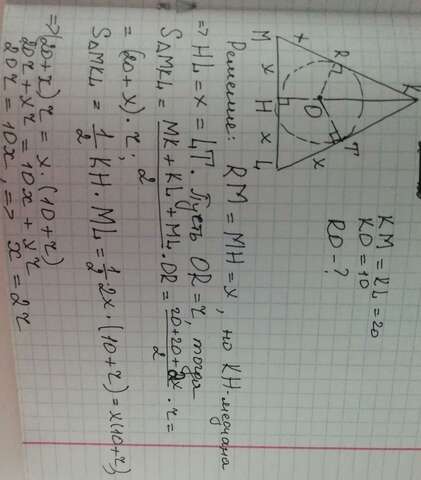 M x R K
x
H O
x
L x T
KM = KL = 20
KO = 10
RO - ?
Решение: RM = MH = x, но KH - медиана
=> HL = x = LT. Пусть OR = r, тогда
S△MKL = (MK + KL + ML)/2 · OR = (20 + 20 + 2x)/2 · r =
= (20 + x) · r;
S△MKL = 1/2 KH · ML = 1/2 2x · (10 + r) = x(10 + r)
=> (20 + r) r = x · (10 + r)
20r + xr = 10x + xr
20r = 10x, => x = 2r